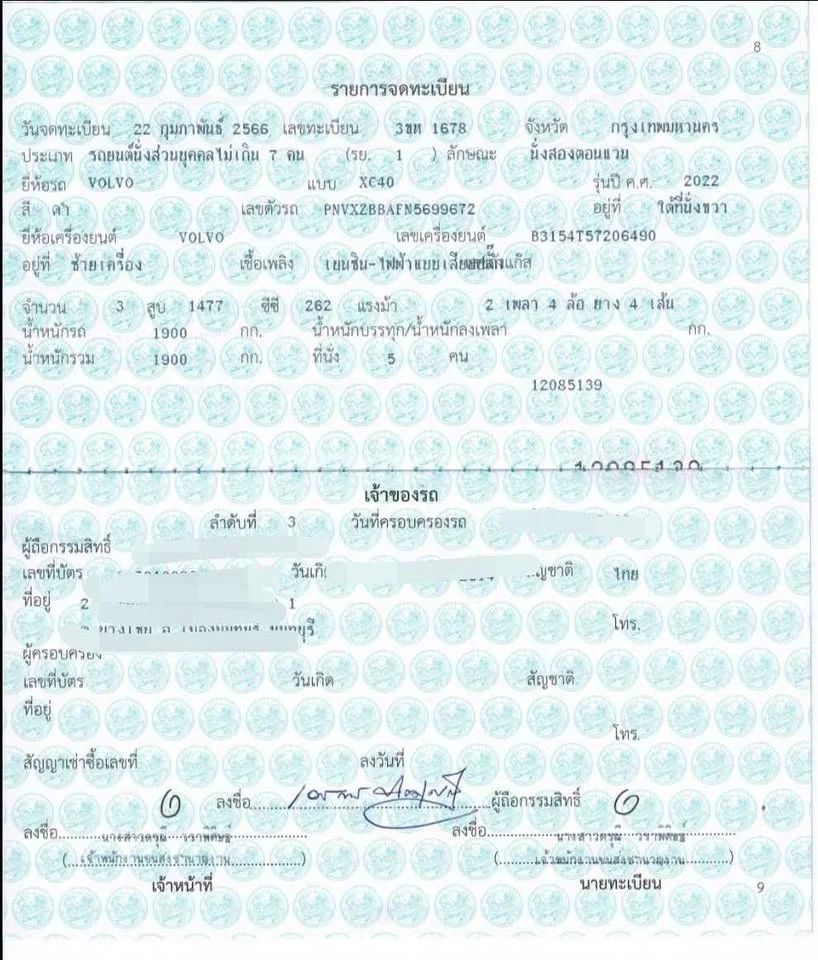 8
รายการจดทะเบียน
วันจดทะเบียน 22 กุมภาพันธ์ 2566 เลขทะเบียน 3ขห 1678 จังหวัด กรุงเทพมหานคร
ประเภท รถยนต์นั่งส่วนบุคคลไม่เกิน 7 คน (รย. 1 ) ลักษณะ นั่งสองตอนแวน
ยี่ห้อรถ VOLVO แบบ XC40 รุ่นปี ค.ศ. 2022
สี ดำ เลขตัวรถ PNVXZBBAFN5699672 อยู่ที่ ใต้ที่นั่งขวา
ยี่ห้อเครื่องยนต์ VOLVO เลขเครื่องยนต์ B3154T57206490
อยู่ที่ ซ้ายเครื่อง เชื้อเพลิง เบนซิน-ไฟฟ้าแบบเสียบปลั๊ก
จำนวน 3 สูบ 1477 ซีซี 262 แรงม้า 2 เพลา 4 ล้อ ยาง 4 เส้น
น้ำหนักรถ 1900 กก. น้ำหนักบรรทุก/น้ำหนักลงเพลา กก.
น้ำหนักรวม 1900 กก. ที่นั่ง 5 คน
12085139
เจ้าของรถ
ลำดับที่ 3 วันที่ครอบครองรถ
ผู้ถือกรรมสิทธิ์
เลขที่บัตร วันเกิ ไทย
ที่อยู่ 2 1
ผู้ครอบครอง
เลขที่บัตร วันเกิด สัญชาติ
โทร.
ที่อยู่
โทร.
สัญญาเช่าซื้อเลขที่ ลงวันที่
ลงชื่อ ผู้ถือกรรมสิทธิ์
ลงชื่อ ลงชื่อ
(เจ้าพนักงานขนส่งชำนาญงาน) (เจ้าพนักงานขนส่งชำนาญงาน)
เจ้าหน้าที่ นายทะเบียน
9